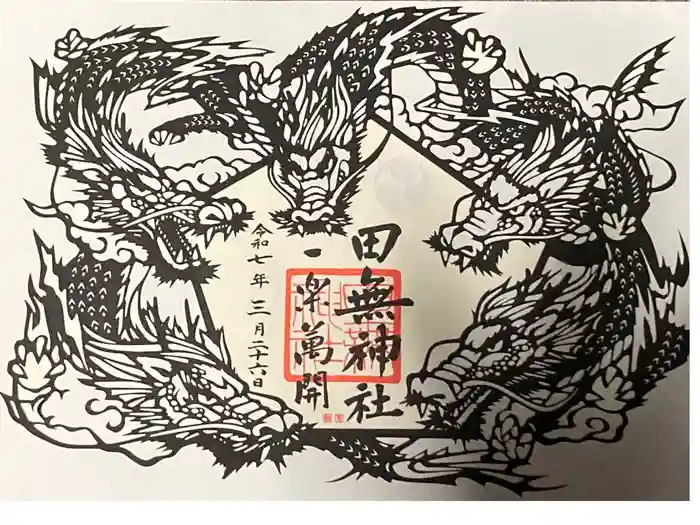 田無神社
一楽萬開
令和七年三月二十六日